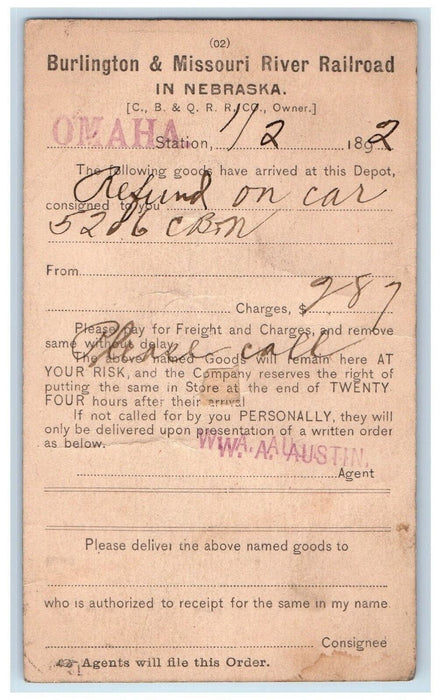 (02)
Burlington & Missouri River Railroad
IN NEBRASKA.
[C., B. & Q. R. R. CO., Owner.]
OMAHA, Station, 1/2 1892
The following goods have arrived at this Depot,
Refund on car
consigned to you
5206 CB&N
From
Charges, $ 287
Please pay for Freight and Charges, and remove
same without delay.
Please call
The above named Goods will remain here AT
YOUR RISK, and the Company reserves the right of
putting the same in Store at the end of TWENTY
FOUR hours after their arrival
If not called for by you PERSONALLY, they will
only be delivered upon presentation of a written order
as below.
W. A. AUSTIN,
Agent
Please deliver the above named goods to
who is authorized to receipt for the same in my name
Consignee
Agents will file this Order.